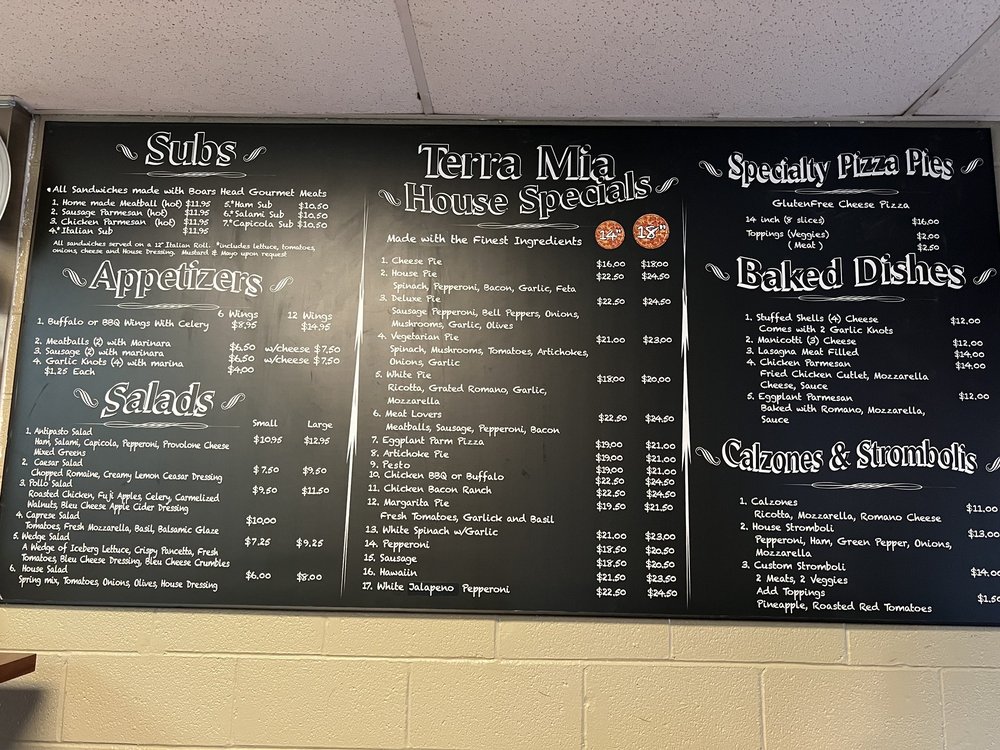 Subs
•All Sandwiches made with Boars Head Gourmet Meats
1. Home made Meatball (hot) $11.95 5.*Ham Sub $10.50
2. Sausage Parmesan (hot) $11.95 6.*Salami Sub $10.50
3. Chicken Parmesan (hot) $11.95 7.*Capicola Sub $10.50
4.*Italian Sub $11.95
All sandwiches served on a 12" Italian Roll. *includes lettuce, tomatoes,
onions, cheese and House Dressing. Mustard & Mayo upon request
Appetizers
6 Wings 12 Wings
1. Buffalo or BBQ Wings With Celery $8.95 $14.95
2. Meatballs (2) with Marinara $6.50 w/cheese $7.50
3. Sausage (2) with marinara $6.50 w/cheese $7.50
4. Garlic Knots (4) with marina $4.00
$1.25 Each
Salads
Small Large
1. Antipasto Salad $10.95 $12.95
Ham, Salami, Capicola, Pepperoni, Provolone Cheese
Mixed Greens
2. Caesar Salad $7.50 $9.50
Chopped Romaine, Creamy Lemon Ceasar Dressing
3. Pollo Salad $9.50 $11.50
Roasted Chicken, Fuji Apples, Celery, Carmelized
Walnuts, Bleu Cheese Apple Cider Dressing
4. Caprese Salad $10.00
Tomatoes, Fresh Mozzarella, Basil, Balsamic Glaze
5. Wedge Salad $7.25 $9.25
A Wedge of Iceberg Lettuce, Crispy Pancetta, Fresh
Tomatoes, Bleu Cheese Dressing, Bleu Cheese Crumbles
6. House Salad $6.00 $8.00
Spring mix, Tomatoes, Onions, Olives, House Dressing
Terra Mia
House Specials
Made with the Finest Ingredients 14" 18"
1. Cheese Pie $16.00 $18.00
2. House Pie $22.50 $24.50
Spinach, Pepperoni, Bacon, Garlic, Feta
3. Deluxe Pie $22.50 $24.50
Sausage Pepperoni, Bell Peppers, Onions,
Mushrooms, Garlic, Olives
4. Vegetarian Pie $21.00 $23.00
Spinach, Mushrooms, Tomatoes, Artichokes,
Onions, Garlic
5. White Pie $18.00 $20.00
Ricotta, Grated Romano, Garlic,
Mozzarella
6. Meat Lovers $22.50 $24.50
Meatballs, Sausage, Pepperoni, Bacon
7. Eggplant Parm Pizza $19.00 $21.00
8. Artichoke Pie $19.00 $21.00
9. Pesto $19.00 $21.00
10. Chicken BBQ or Buffalo $22.50 $24.50
11. Chicken Bacon Ranch $22.50 $24.50
12. Margarita Pie $19.50 $21.50
Fresh Tomatoes, Garlick and Basil
13. White Spinach w/Garlic $21.00 $23.00
14. Pepperoni $18.50 $20.50
15. Sausage $18.50 $20.50
16. Hawaiin $21.50 $23.50
17. White Jalapeno Pepperoni $22.50 $24.50
Specialty Pizza Pies
GlutenFree Cheese Pizza
14 inch (8 slices) $16.00
Toppings (Veggies) $2.00
( Meat ) $2.50
Baked Dishes
1. Stuffed Shells (4) Cheese $12.00
Comes with 2 Garlic Knots
2. Manicotti (3) Cheese $12.00
3. Lasagna Meat Filled $14.00
4. Chicken Parmesan $14.00
Fried Chicken Cutlet, Mozzarella
Cheese, Sauce
5. Eggplant Parmesan $12.00
Baked with Romano, Mozzarella,
Sauce
Calzones & Strombolis
1. Calzones $11.00
Ricotta, Mozzarella, Romano Cheese
2. House Stromboli $13.00
Pepperoni, Ham, Green Pepper, Onions,
Mozzarella
3. Custom Stromboli $14.00
2 Meats, 2 Veggies
Add Toppings $1.50
Pineapple, Roasted Red Tomatoes